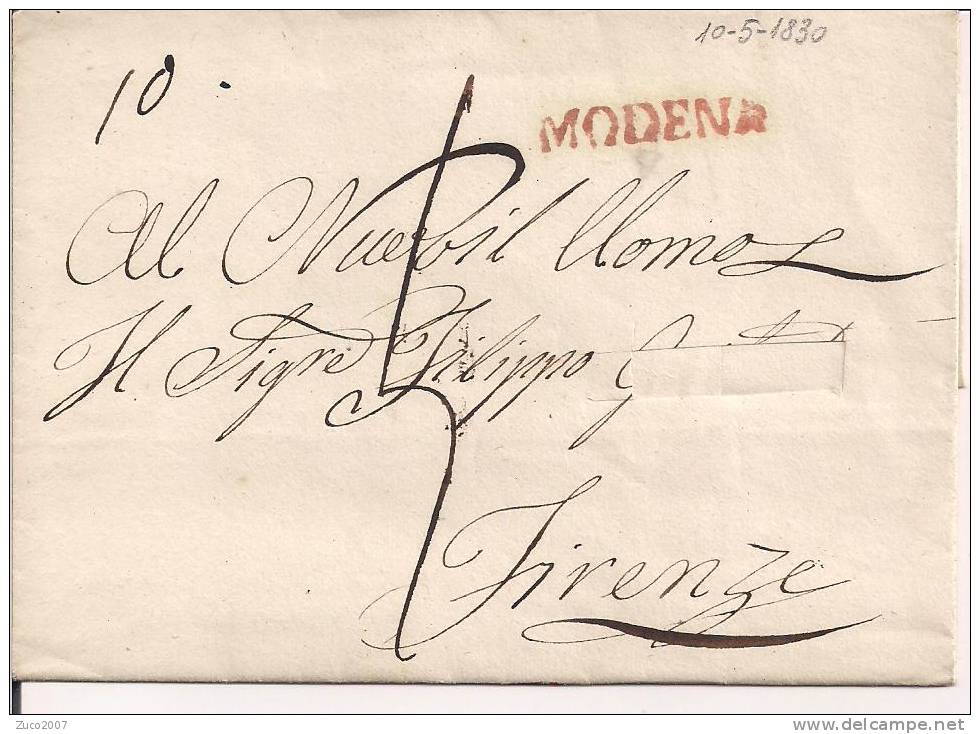 10-5-1830
10.
MODENA
Al Nuebil Uomo
Il Sigre Filippo
Firenze
Zuco2007
www.delcampe.net